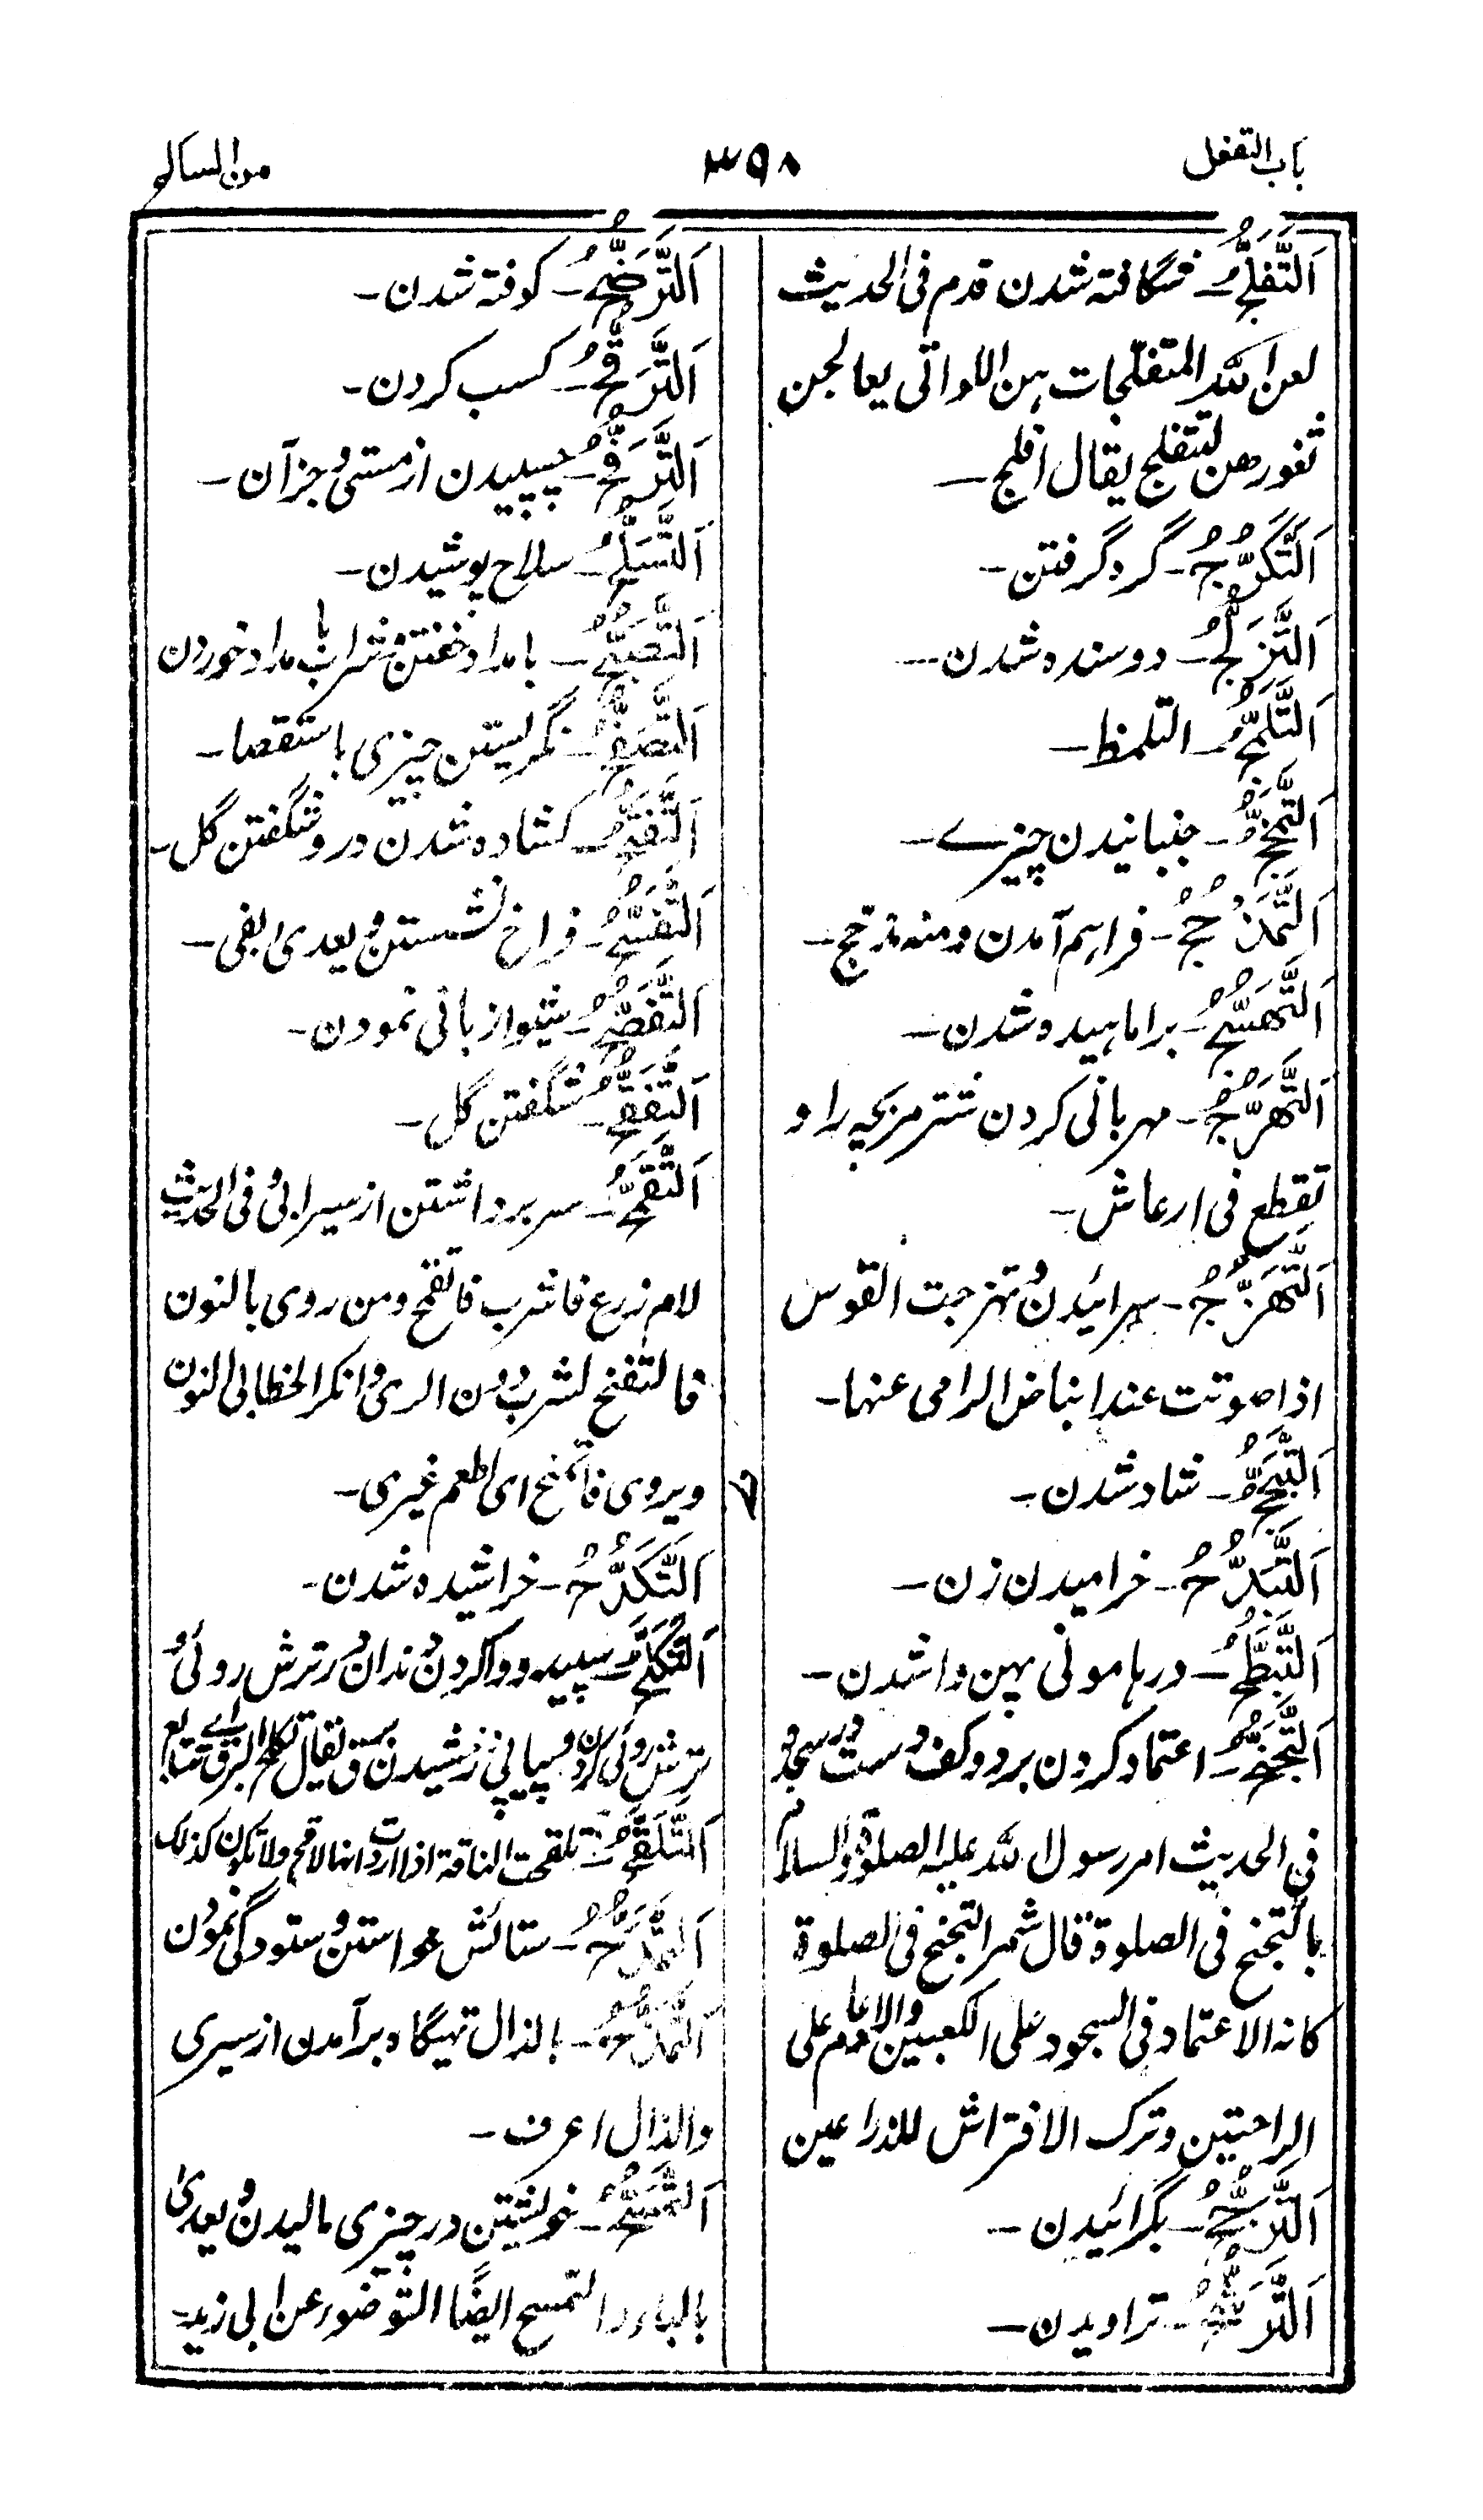 باب التفعل
٣٩٨
من السالم
اَلتَّفَلُّجُ ـ شگافته شدن قدم فی الحدیث
لعن الله المتفلّجات ہن اللواتی یعالجن
ثغورهن لتتفلج یقال افلج ـ
اَلتَّكَرُّجُ ـ گرد گرفتن ـ
اَلتَّزَلُّجُ ـ دوسنده شدن ـ
اَلتَّلَمُّجُ ـ التلمظ ـ
اَلتَّمَخُّجُ ـ جنبانیدن چیزے ـ
فراہم آمدن ومنه
اَلتَّهَبُّجُ ـ براماہیده شدن ـ
اَلتَّهَرُّجُ ـ مہربانی کردن شتر مر بچه را و
تقطع فی ارعاش ـ
اَلتَّهَزُّجُ ـ سرائیدن وتهزجت القوس
اذا صوتت عند انباض الرامی عنها ـ
اَلتَّبَجُّحُ ـ شاد شدن ـ
اَلتَّبَدُّحُ ـ خرامیدن زن ـ
اَلتَّبَطُّحُ ـ در ہامونی پہن واشدن ـ
اَلتَّجَنُّحُ ـ اعتماد کردن بر دو کف دست در سجود
فی الحدیث امر رسول الله علیه الصلوة والسلام
بالتجنح فی الصلوة قال شمر التجنح فی الصلوة
كانه الاعتماد فی السجود علی الكعبین والادعام علی
الراحتین وترك الافتراش للذراعین
اَلتَّرَجُّحُ ـ بگرائیدن ـ
اَلتَّرَشُّحُ ـ تراویدن ـ
اَلتَّرَضُّحُ ـ کوفته شدن ـ
اَلتَّرَقُّحُ ـ کسب کردن ـ
اَلتَّرَنُّحُ ـ چسپیدن از مستی وجز آن ـ
اَلتَّسَلُّحُ ـ سلاح پوشیدن ـ
اَلتَّصَبُّحُ ـ بامداد خفتن وشراب بامداد خوردن
اَلتَّصَفُّحُ ـ نگریستن چیزی باستقصا ـ
اَلتَّفَتُّحُ ـ کشاده شدن در وشگفتن گل ـ
اَلتَّفَسُّحُ ـ فراخ نشستن ویعدی بفی ـ
اَلتَّفَصُّحُ ـ شیوا زبانی نمودن ـ
اَلتَّفَقُّحُ ـ شگفتن گل ـ
اَلتَّقَمُّحُ ـ سر برداشتن از سیرابی وفی الحدیث
لام زرع فاشرب فاتقمح ومن روی بالنون
فالتقنح لشرب دون الری وانكر الخطابی النون
ویروی فاتمنح ای اطعم غیری ـ
اَلتَّكَدُّحُ ـ خراشیده شدن ـ
اَلتَّكَلُّحُ ـ سپید وواکردن دندان در ترش روئی و
ترش روئی کردن وپیاپی درخشیدن برق یقال تکلح البرق اے تتابع
اَلتَّلَقُّحُ ـ تلقحت الناقة اذا ارت انها لاقح ولا تكون كذلك
اَلتَّمَدُّحُ ـ ستائش خواستن وستودگی نمودن
اَلتَّمَدُّحُ ـ بالذال تہیگاہ برآمدن از سیری
والذال اعرف ـ
اَلتَّمَسُّحُ ـ خویشتن در چیزی مالیدن ویعدیٰ
بالباء والتمسح ایضًا التوضوء عن ابی زید ـ